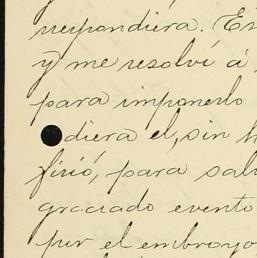 respondiera. Es
y me resolví á
para imponerlo
diera el, sin h
firió, para salv
graciado evento
por el embroyo